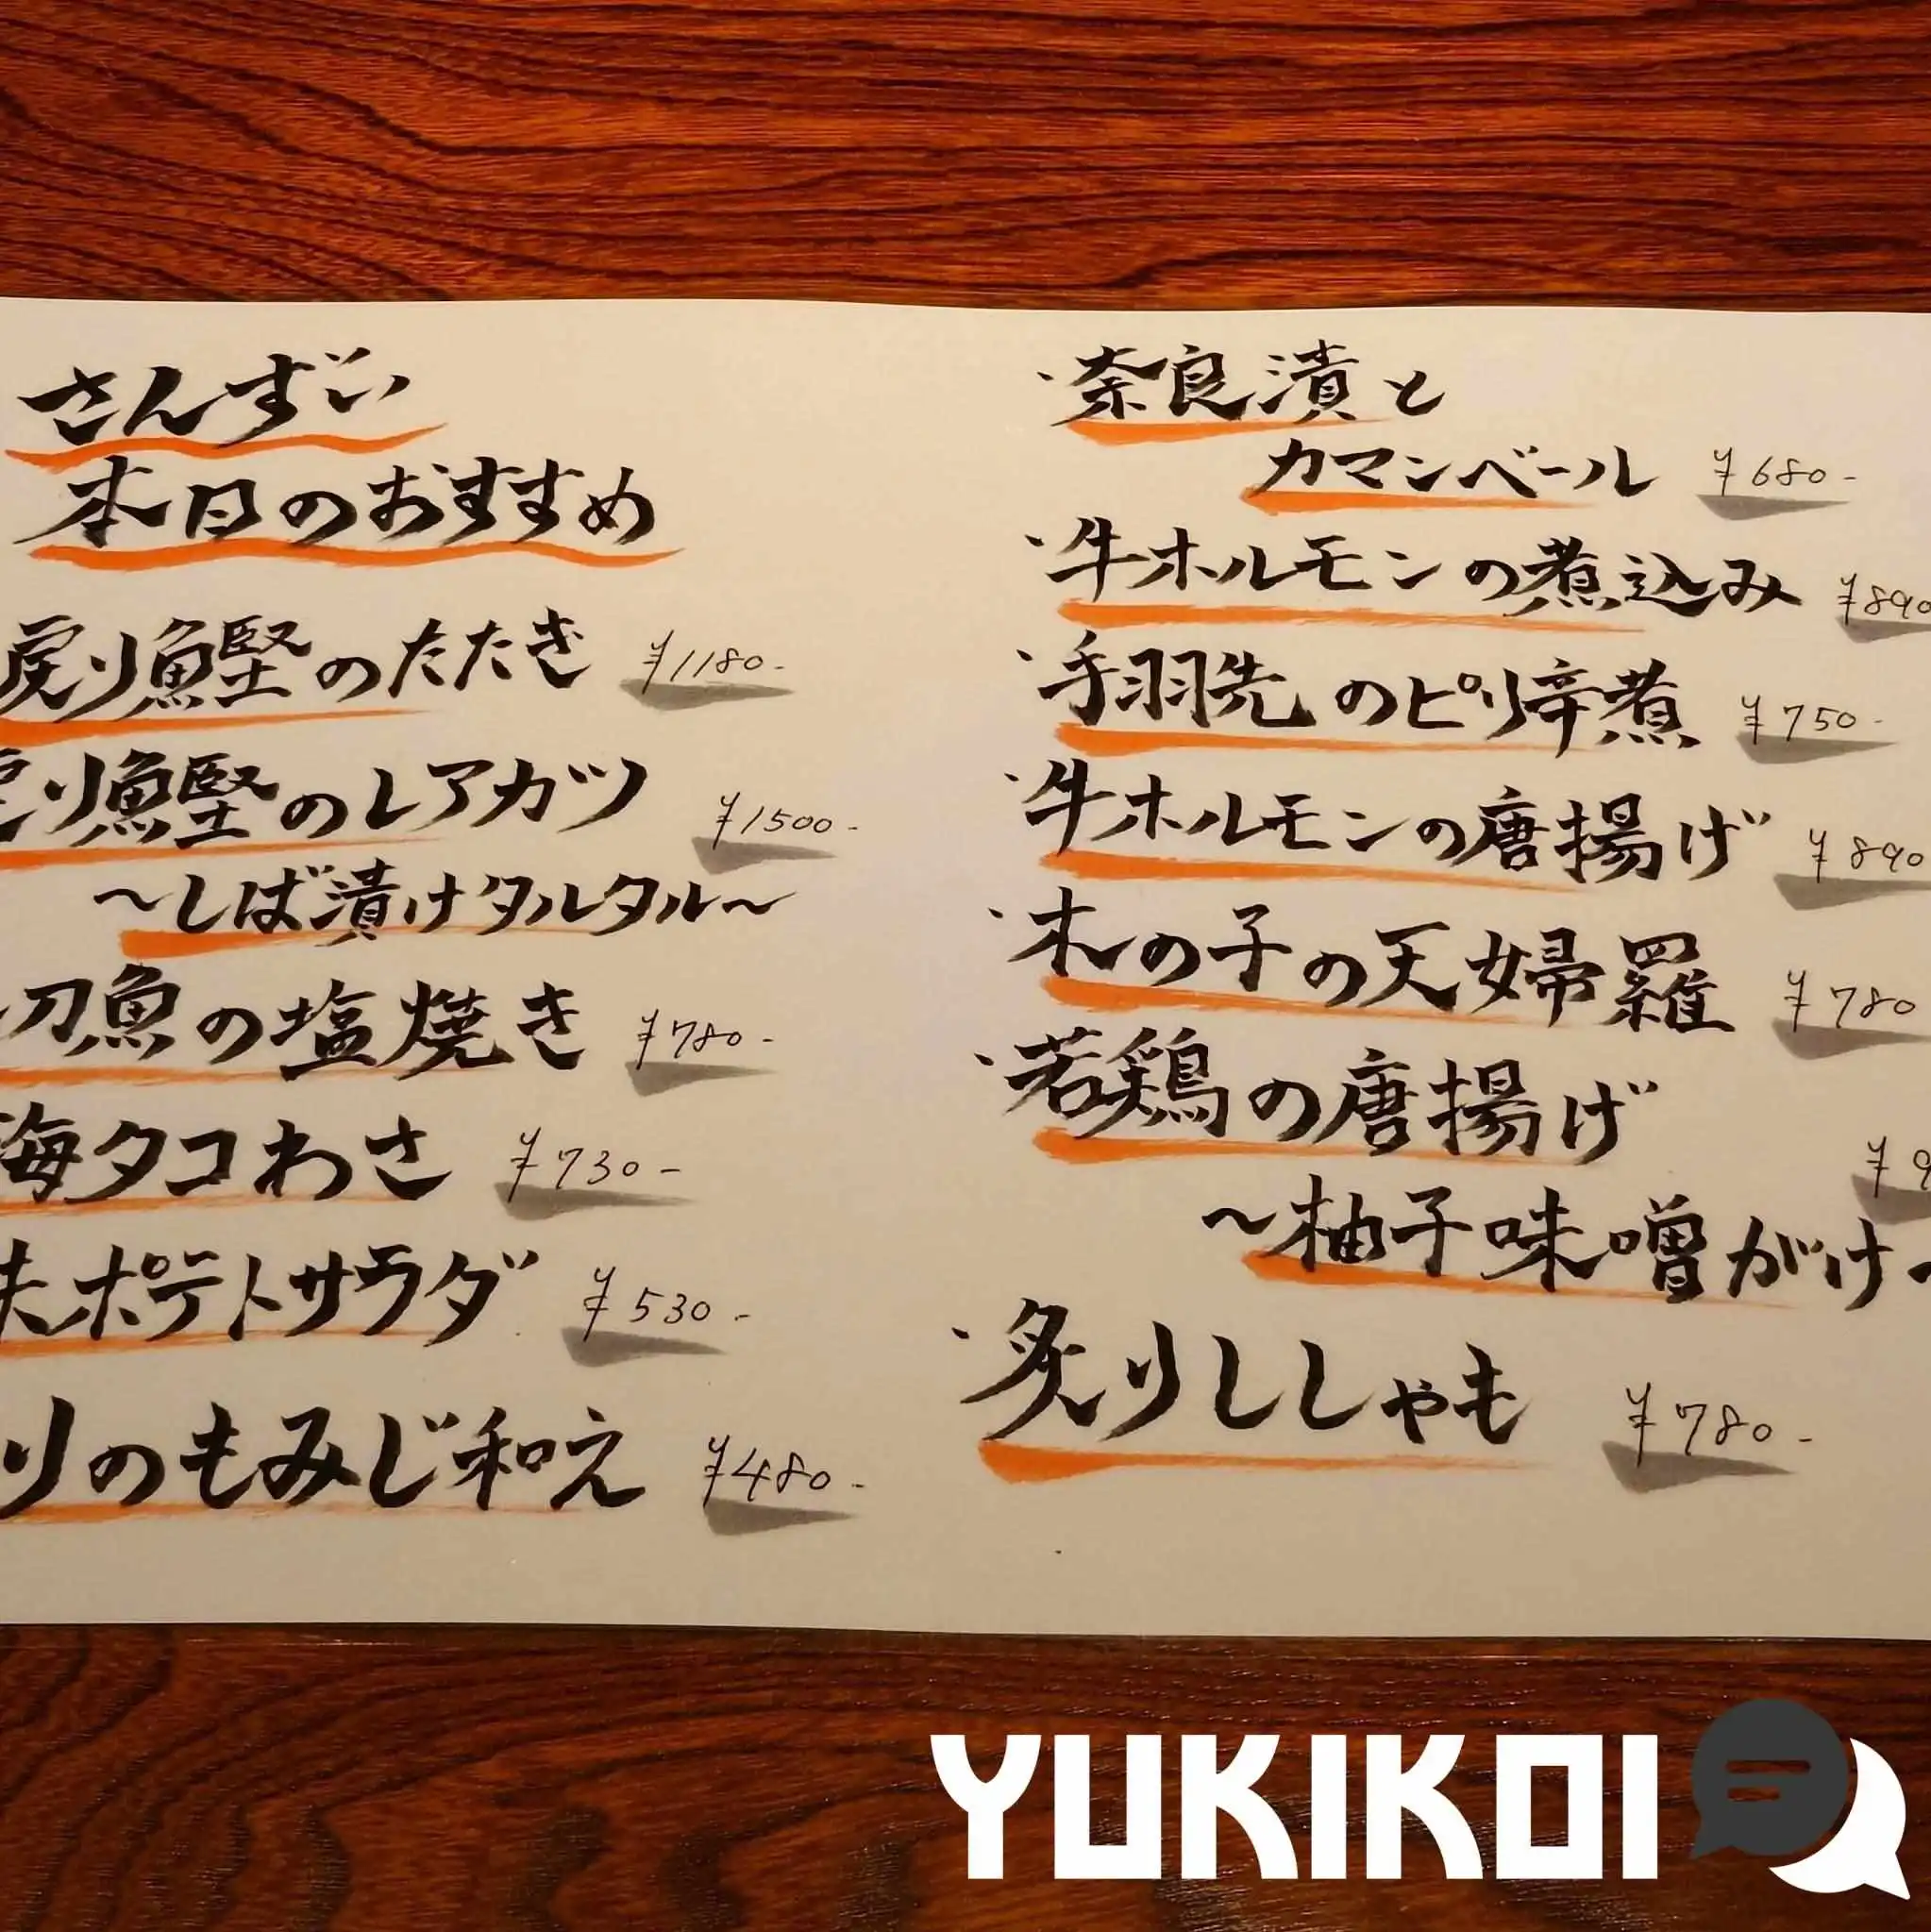 さんずい
本日のおすすめ
戻り鰹のたたき ¥1180-
戻り鰹のレアカツ ¥1500-
〜しば漬けタルタル〜
刀魚の塩焼き ¥780-
海タコわさ ¥730-
ポテトサラダ ¥530-
りのもみじ和え ¥480-
・奈良漬と
カマンベール ¥680-
・牛ホルモンの煮込み ¥890
・手羽先のピリ辛煮 ¥750-
・牛ホルモンの唐揚げ ¥890
・木の子の天婦羅 ¥780
・若鶏の唐揚げ ¥9
〜柚子味噌がけ〜
・炙りししゃも ¥780-
YUKIKOI